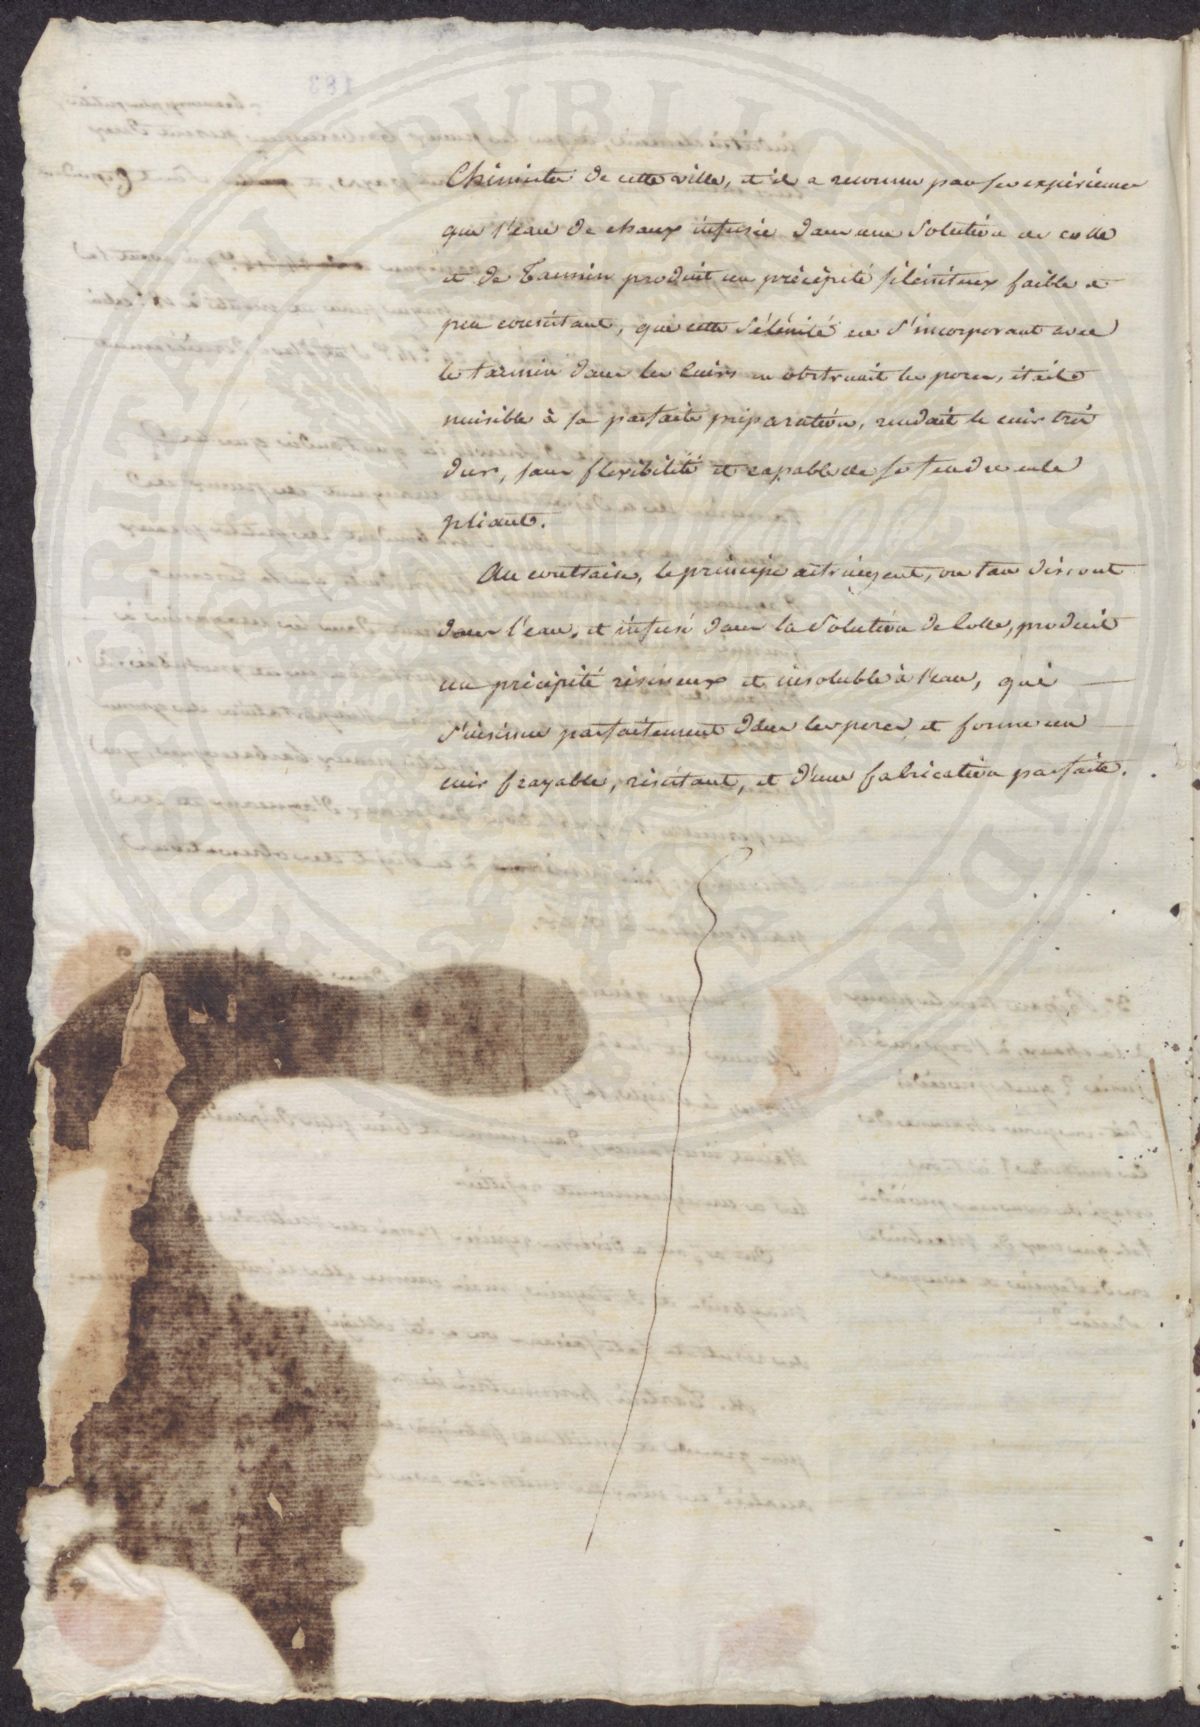 Chimiste de cette ville, et il a reconnu par ses expériences
que l'eau de chaux infusée dans une Solution de colle
et de Tannin produit un précipité séléniteux faible et
peu consistant, que cette Sélénite en s'incorporant avec
le tannin dans les Cuirs en obstruait les pores, était
nuisible à sa parfaite préparation, rendait le cuir très
dur, sans flexibilité et capable de se fendre en le
pliant.
Au contraire, le principe astringent, ou tan dissout
dans l'eau, et infusé dans la Solution de Colle, produit
un précipité résineux et insoluble à l'eau, qui
s'insinue parfaitement dans les pores, et forme un
cuir frayable, résistant, et d'une fabrication parfaite.